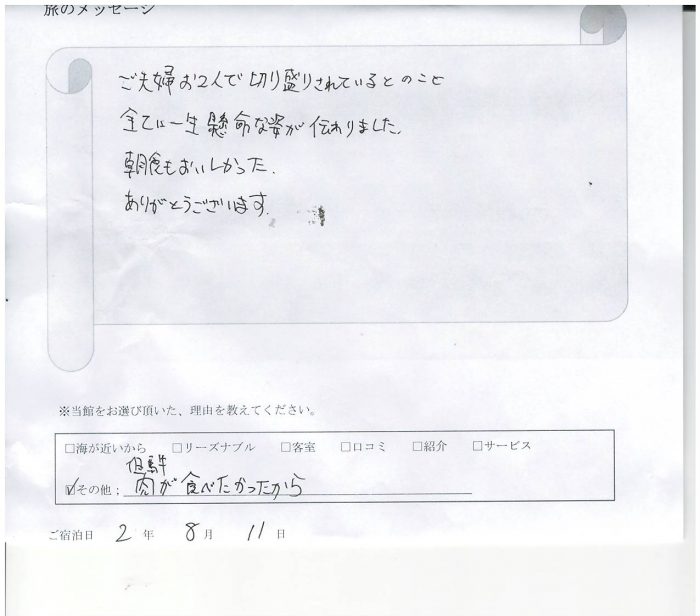 旅のメッセージ
ご夫婦お2人で切り盛りされているとのこと
全てに一生懸命な姿が伝わりました。
朝食もおいしかった.
ありがとうございます.
※当館をお選び頂いた、理由を教えてください。
□海が近いから □リーズナブル □客室 □口コミ □紹介 □サービス
但馬牛
☑その他: 肉が食べたかったから
ご宿泊日 2 年 8 月 11 日